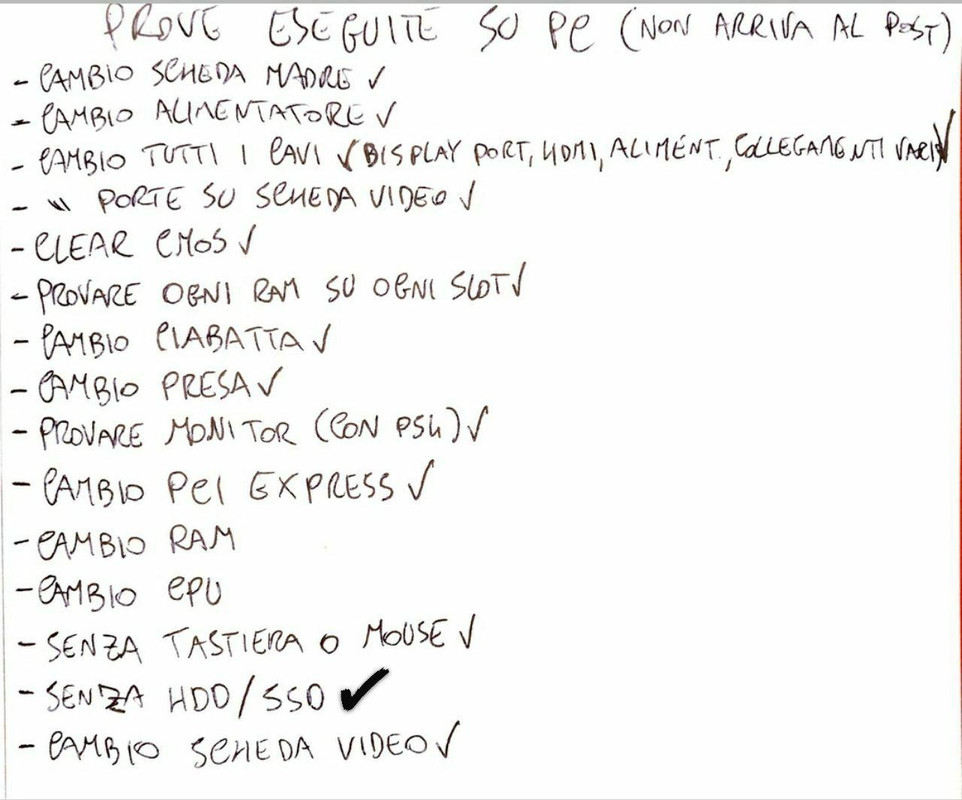 PROVE ESEGUITE SU PC (NON ARRIVA AL POST)
- CAMBIO SCHEDA MADRE ✓
- CAMBIO ALIMENTATORE ✓
- CAMBIO TUTTI I CAVI ✓ (DISPLAY PORT, HDMI, ALIMENT., COLLEGAMENTI VARI) ✓
- " PORTE SU SCHEDA VIDEO ✓
- CLEAR CMOS ✓
- PROVARE OGNI RAM SU OGNI SLOT ✓
- CAMBIO CIABATTA ✓
- CAMBIO PRESA ✓
- PROVARE MONITOR (CON PS4) ✓
- CAMBIO PCI EXPRESS ✓
- CAMBIO RAM
- CAMBIO CPU
- SENZA TASTIERA O MOUSE ✓
- SENZA HDD/SSD ✓
- CAMBIO SCHEDA VIDEO ✓